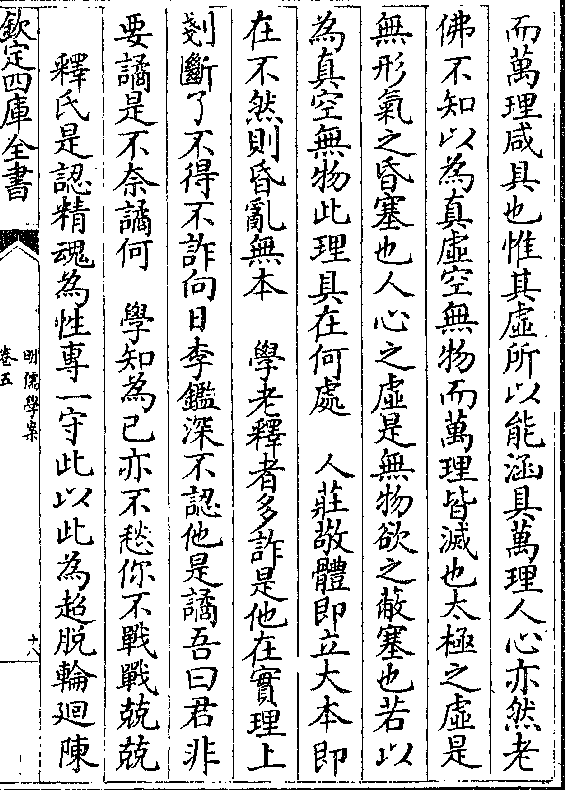 而萬理咸具也惟其虛所以能涵具萬理人心亦然老
佛不知以為真虛空無物而萬理皆滅也太極之虛是
無形氣之昏塞也人心之虛是無物欲之蔽塞也若以
為真空無物此理具在何處　人莊敬體即立大本即
在不然則昏亂無本　學老釋者多詐是他在實理上
剗斷了不得不詐向日李鑑深不認他是譎吾曰君非
要譎是不奈譎何　學知為己亦不愁你不戰戰兢兢
釋氏是認精魂為性專一守此以此為超脫輪廻陳
欽定四庫全書
明儒學案
卷五
十八